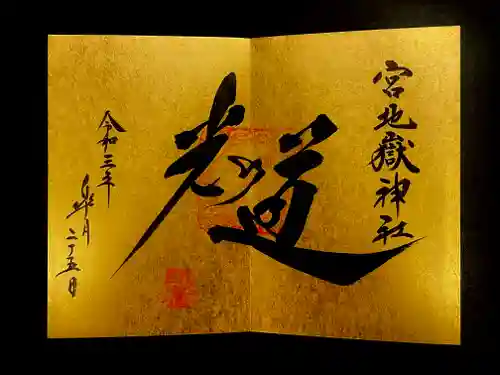 宮地嶽神社
光の道
令和三年
皐月二十五日